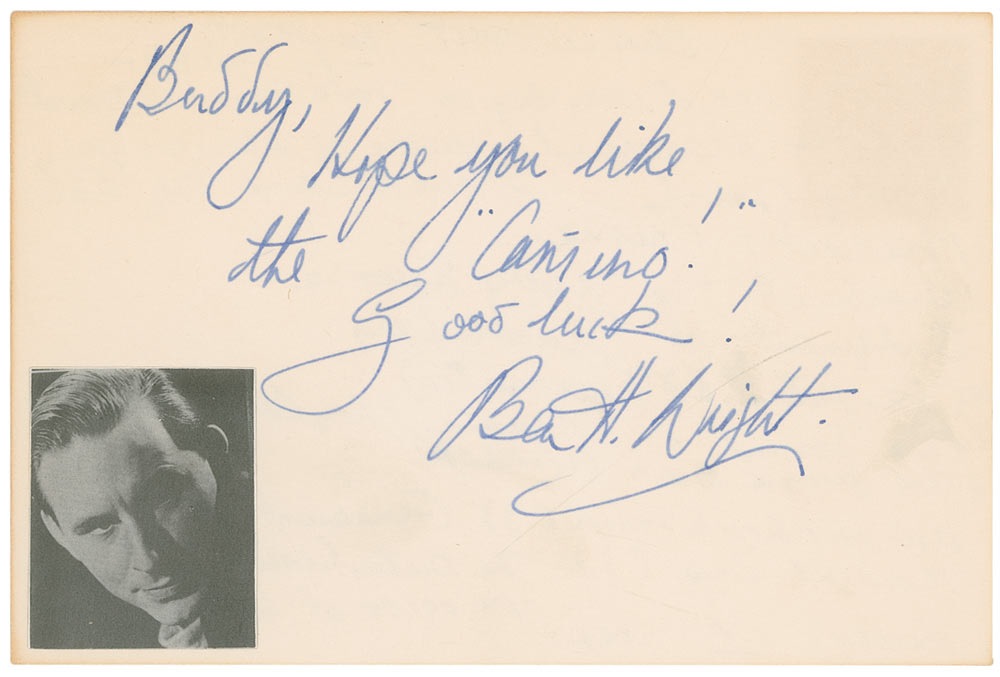 Buddy,
Hope you like
the "Camino!"
Good luck!
Ben H. Wright.